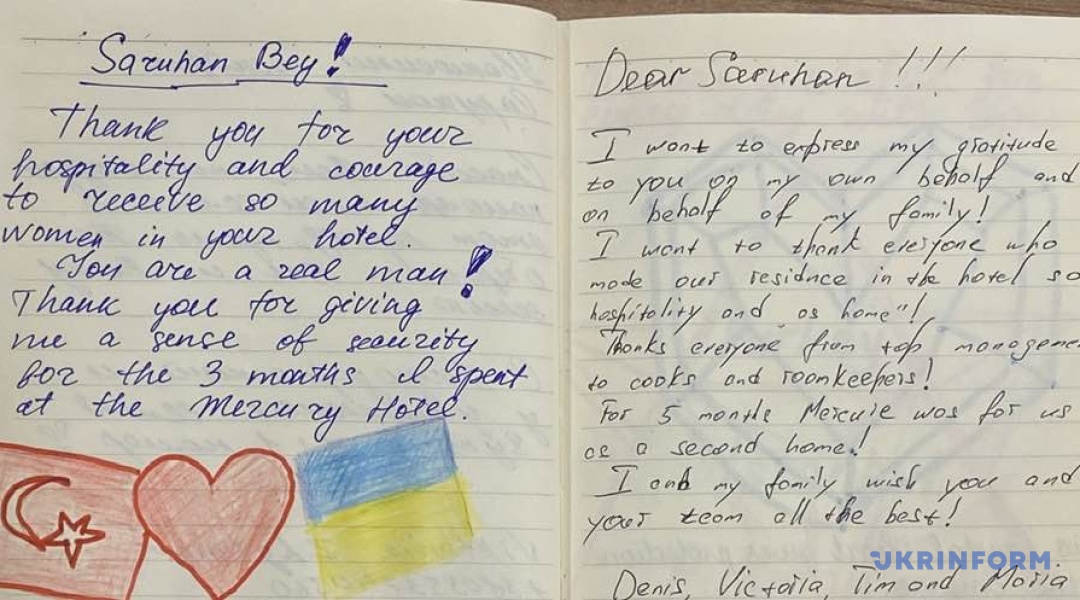 Saruhan Bey!
Thank you for your
hospitality and courage
to receeve so many
women in your hotel.
You are a real man!
Thank you for giving
me a sense of security
for the 3 months I spent
at the Mercury Hotel.
Dear Saruhan !!!
I want to express my gratitude
to you on my own behalf and
on behalf of my family!
I want to thank everyone who
made our residnce in the hotel so
hospitolity and as home"!
Thanks everyone from top manageme
to cooks and roomkeepers!
For 5 months Mercure was for us
as a second home!
I and my family wish you and
your team all the best!
Denis, Victoria, Tim and Maria
UKRINFORM